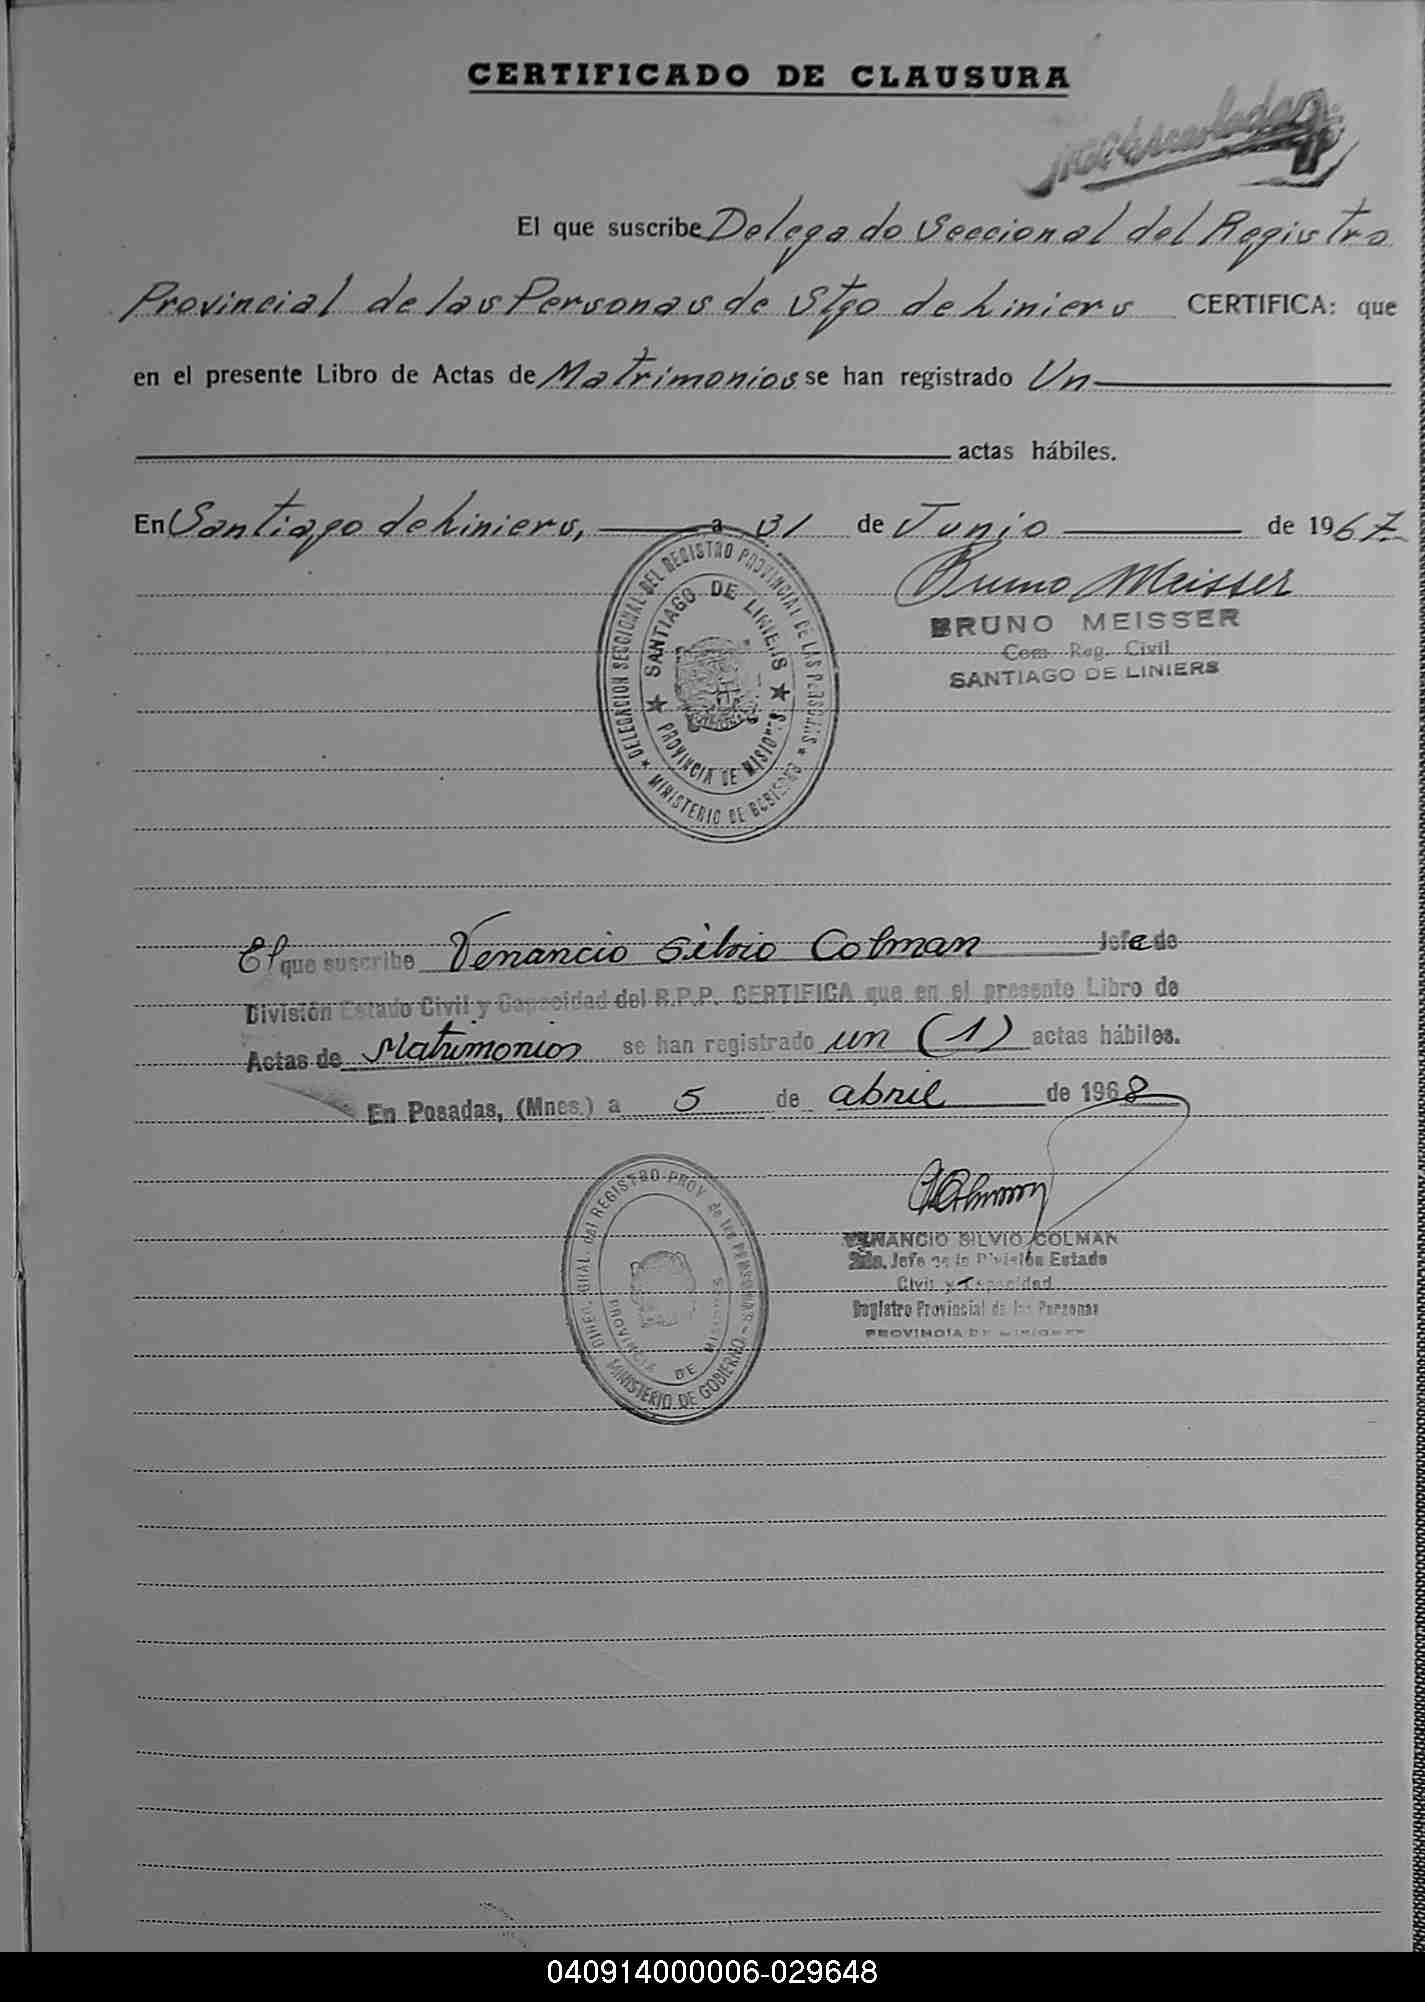 CERTIFICADO DE CLAUSURA
El que suscribe Delegado Seccional del Registro
Provincial de las Personas de Stgo de Liniers CERTIFICA: que
en el presente Libro de Actas de Matrimonios se han registrado Un
actas hábiles.
En Santiago de Liniers, a 31 de Junio de 1967.
Bruno Meisser
BRUNO MEISSER
Com. Reg. Civil
SANTIAGO DE LINIERS
DELEGACION SECCIONAL DEL REGISTRO PROVINCIAL DE LAS PERSONAS
SANTIAGO DE LINIERS
PROVINCIA DE MISIONES
MINISTERIO DE
El que suscribe Venancio Silvio Colman Jefe de
División Estado Civil y Capacidad del R.P.P. CERTIFICA que en el presente Libro de
Actas de Matrimonios se han registrado un (1) actas hábiles.
En Posadas, (Mnes.) a 5 de abril de 1968
VENANCIO SILVIO COLMAN
2do. Jefe de la División Estado
Civil y Capacidad
Registro Provincial de las Personas
PROVINCIA DE MISIONES
DIREC. GRAL. del REGISTRO PROV. de las PERSONAS
PROVINCIA DE MISIONES
MINISTERIO DE GOBIERNO
040914000006-029648